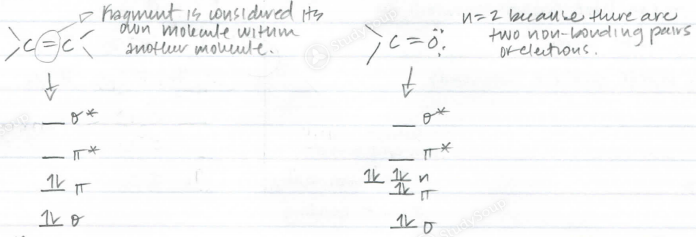 fragment is considered its
own molecule within
another molecule.
>C=C<
σ*
π*
1L π
1L σ
n=2 because there are
two non-bonding pairs
of electrons.
>C=Ö:
σ*
π*
1L 1L n
1L π
1L σ